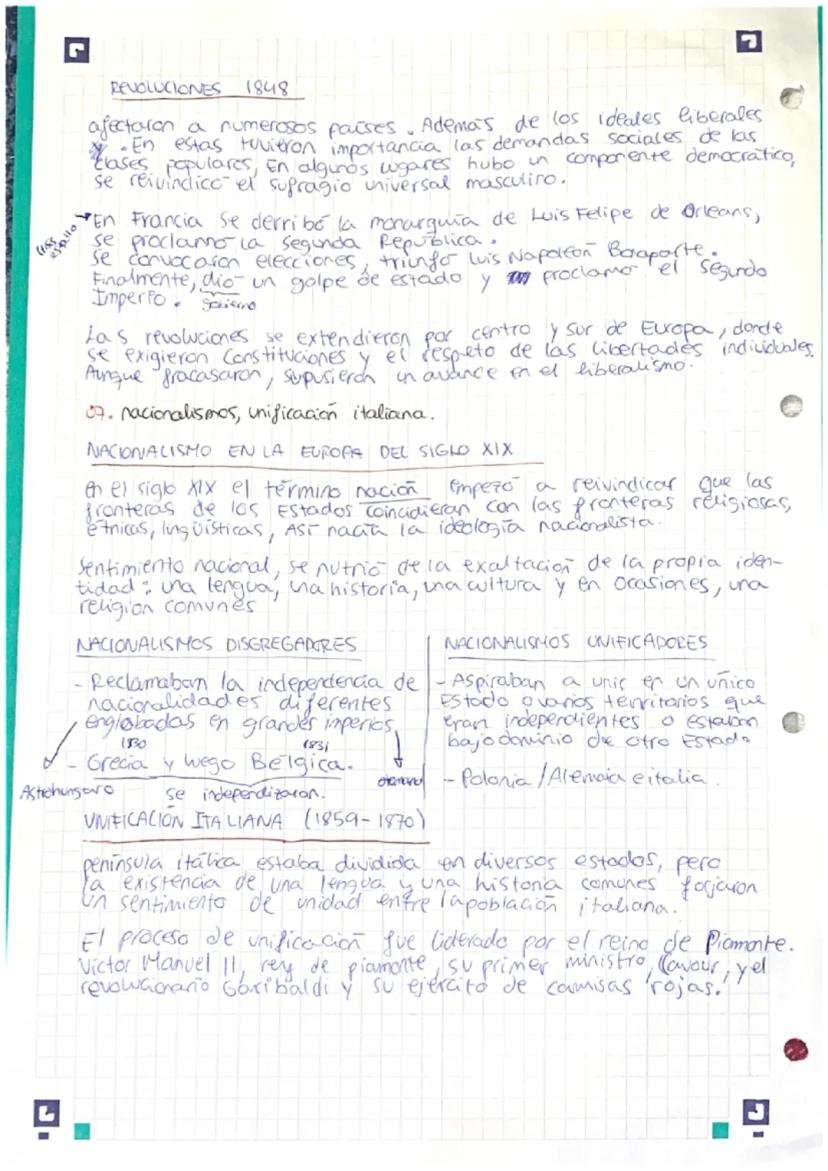 REVOLUCIONES 1848
afectaron a numerosos países. Además de los ideales liberales
y. En estas tuvieron importancia las demandas sociales de las
clases populares, En algunos lugares hubo un componente democrático,
se reivindicó el sufragio universal masculino.
En Francia se derribó la monarquía de Luis Felipe de Orleans,
se proclamó la Segunda República.
se convocaron elecciones, triunfó Luis Napoleón Bonaparte.
Finalmente, dio un golpe de estado y proclamo el segundo
Imperio.
Las revoluciones se extendieron por centro y sur de Europa, donde
se exigieron Constituciones y el respeto de las libertades individuales.
Aunque fracasaron, supusieron un avance en el liberalismo.
07. nacionalismos, unificación italiana.
NACIONALISMO EN LA EUROPA DEL SIGLO XIX
En el siglo XIX el término nación empezó a reivindicar que las
fronteras de los Estados coincidieran con las fronteras religiosas,
étnicas, lingüísticas, Así nacía la ideología nacionalista.
Sentimiento nacional, se nutrió de la exaltación de la propia iden-
tidad: una lengua, una historia, una cultura y en ocasiones, una
religion comunes
NACIONALISMOS DISGREGADORES
- Reclamaban la independencia de
nacionalidades diferentes
englobadas en grandes imperios
1830 1831
- Grecia y luego Bélgica.
Astrohungaro otomano
se independizaron.
NACIONALISMOS UNIFICADORES
- Aspiraban a unir en un único
Estado a varios territorios que
eran independientes o estaban
bajo dominio de otro Estado
- Polonia / Alemaia e italia.
UNIFICACIÓN ITALIANA (1859-1870)
península itálica estaba dividida en diversos estados, pero
la existencia de una lengua y una historia comunes forjaron
un sentimiento de unidad entre la población italiana.
El proceso de unificación fue liderado por el reino de Piamonte.
Victor Manuel II, rey de piamonte, su primer ministro, Cavour, y el
revolucionario Garibaldi y su ejército de camisas rojas.